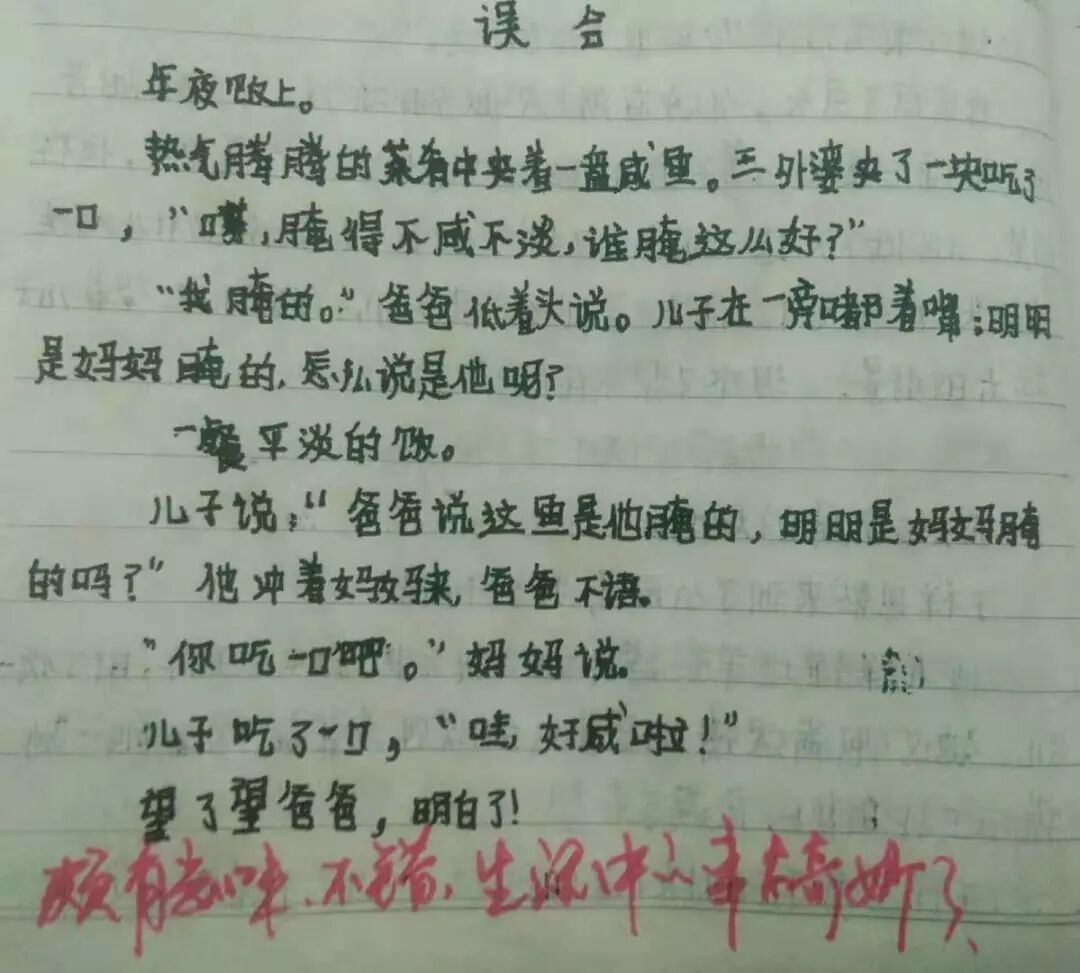 误会
年夜饭上。
热气腾腾的菜肴中夹着一盘咸鱼。三外婆夹了一块吃了
一口，“嘿，腌得不咸不淡，谁腌这么好？”
“我腌的。”爸爸低着头说。儿子在一旁嘟着嘴：明明
是妈妈腌的，怎么说是他呢？
一餐平淡的饭。
儿子说：“爸爸说这鱼是他腌的，明明是妈妈腌
的吗？”他冲着妈妈来，爸爸不语。
“你吃一口吧。”妈妈说。
儿子吃了一口，“哇，好咸啦！”
望了望爸爸，明白了！
颇有趣味、不错、生活中的事太奇妙了、